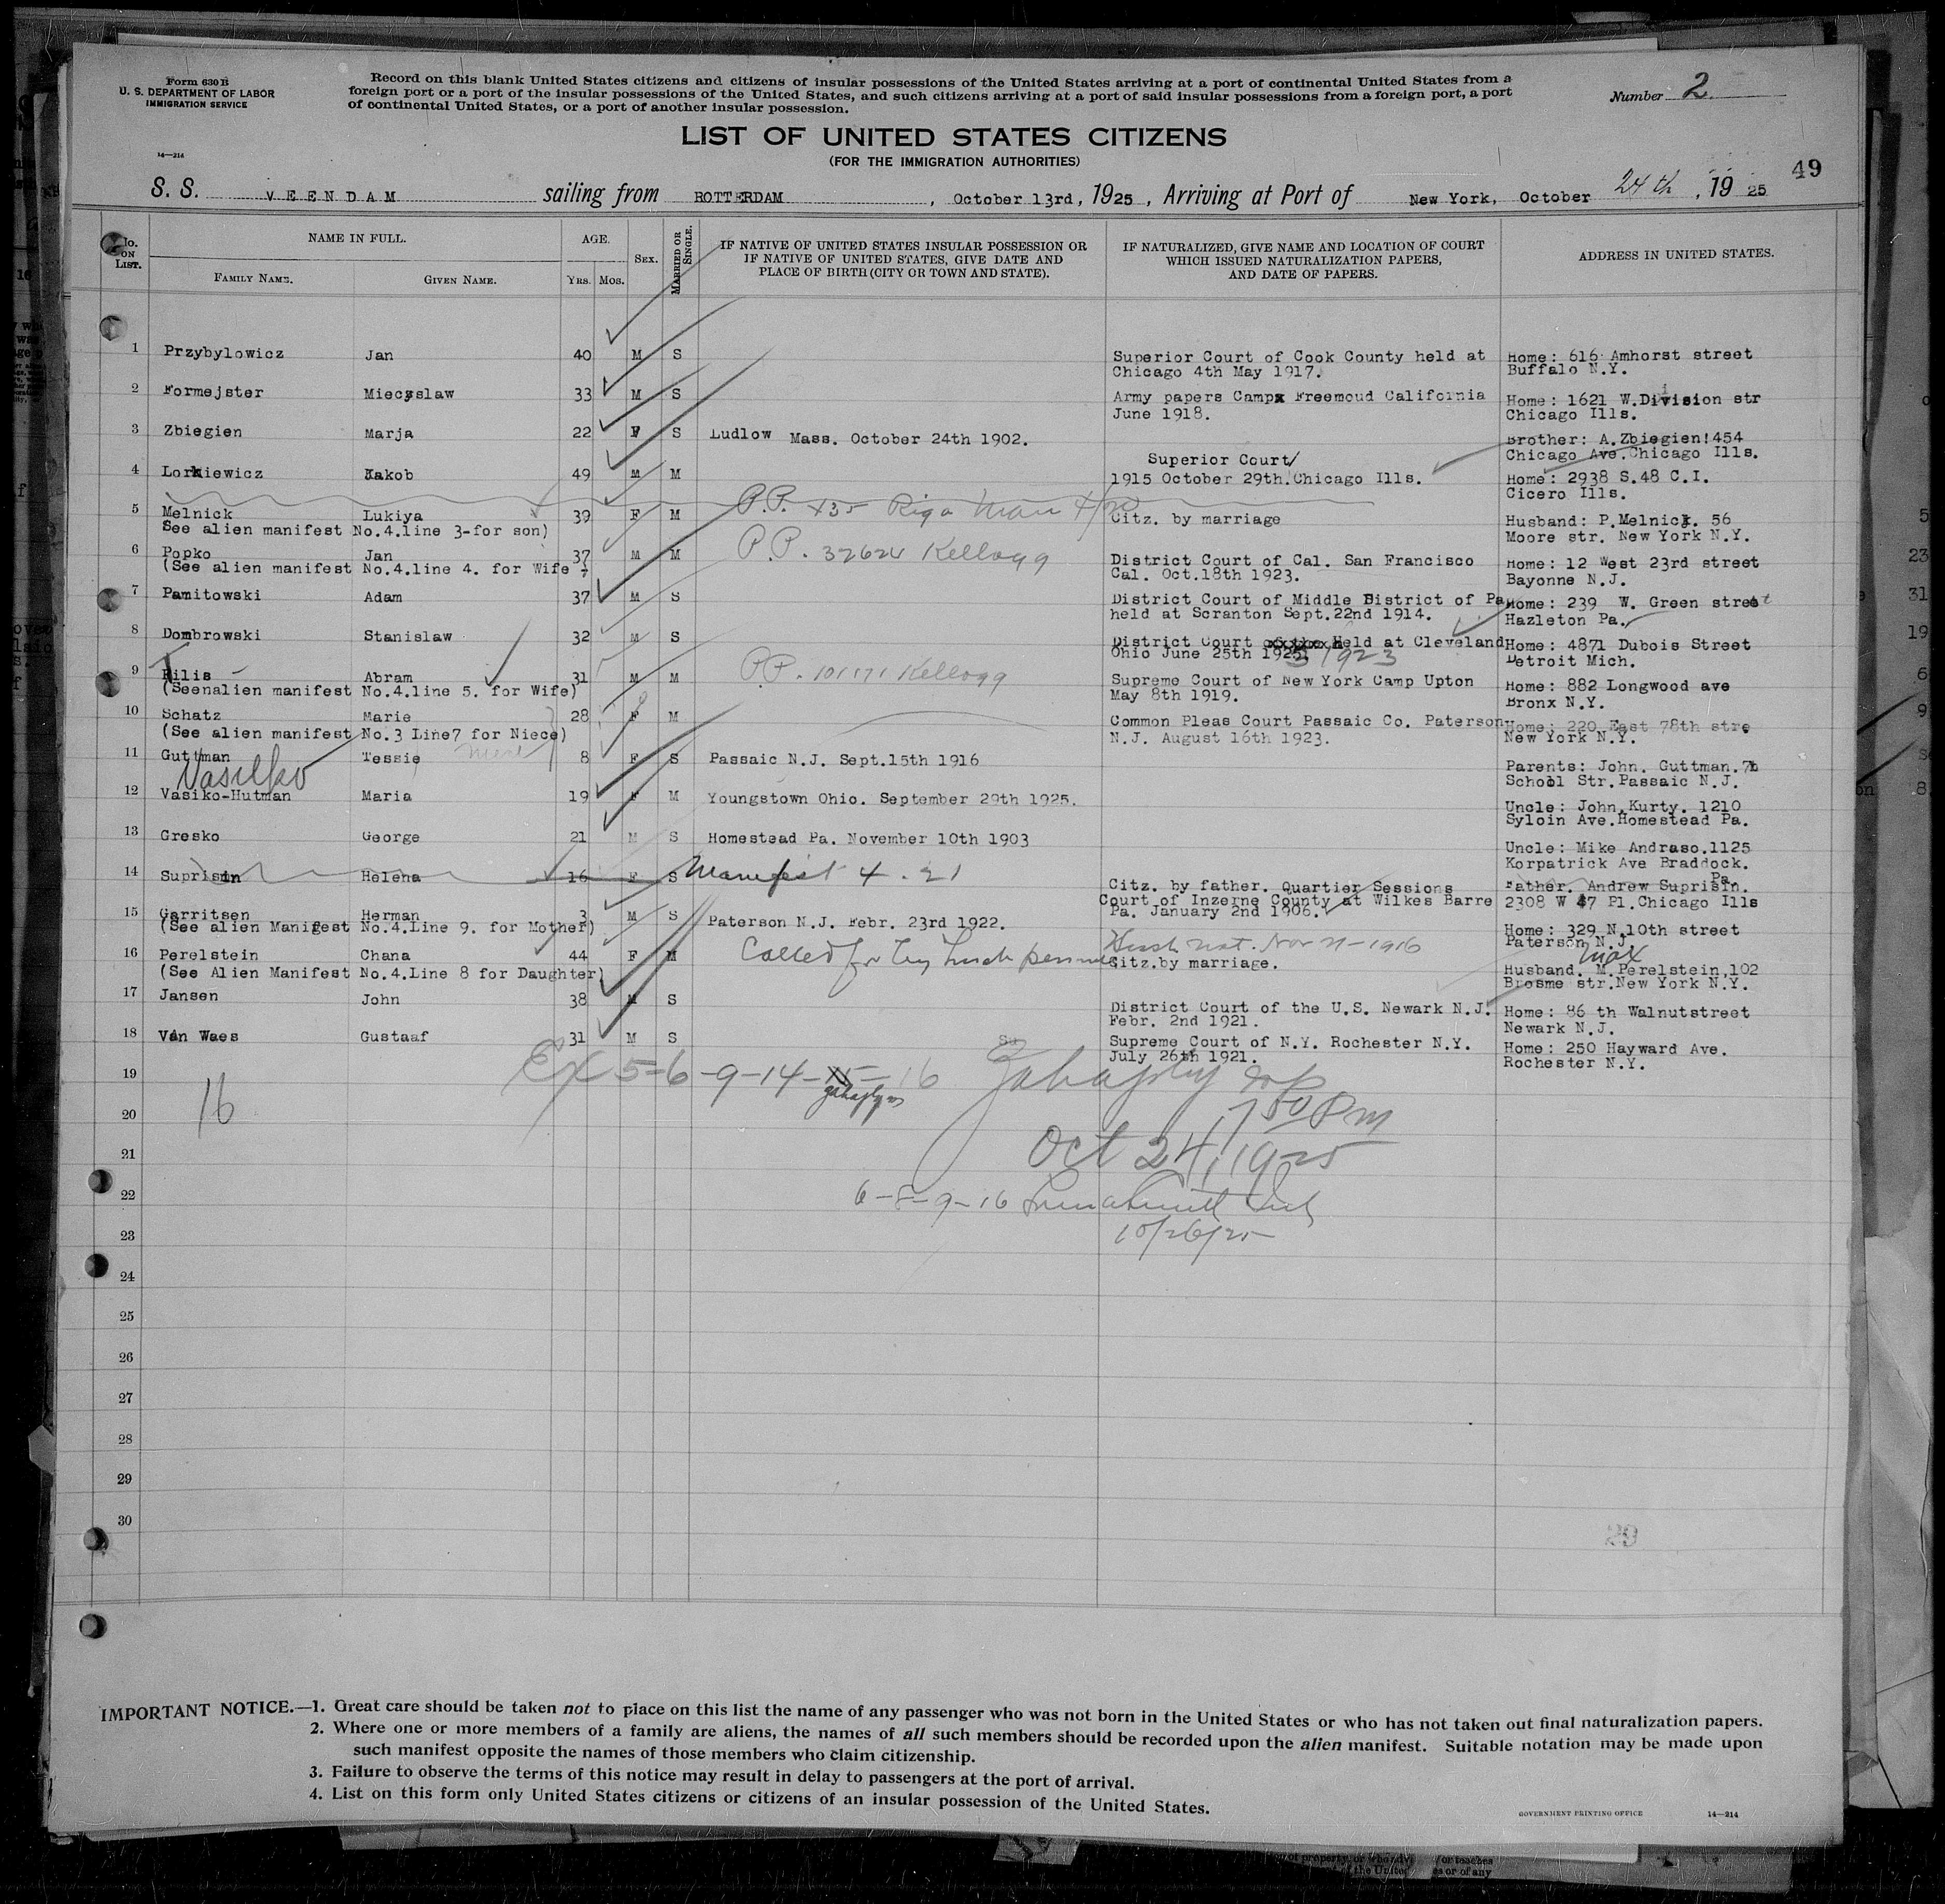 Form 630 B
U. S. DEPARTMENT OF LABOR
IMMIGRATION SERVICE
14—214
Record on this blank United States citizens and citizens of insular possessions of the United States arriving at a port of continental United States from a
foreign port or a port of the insular possessions of the United States, and such citizens arriving at a port of said insular possessions from a foreign port, a port
of continental United States, or a port of another insular possession.
Number 2
LIST OF UNITED STATES CITIZENS
(FOR THE IMMIGRATION AUTHORITIES)
49
S. S. VEENDAM sailing from ROTTERDAM, October 13rd, 1925, Arriving at Port of New York, October 24th, 1925
No. ON LIST.
NAME IN FULL.
FAMILY NAME.
GIVEN NAME.
AGE.
YRS. MOS.
SEX.
MARRIED OR SINGLE.
IF NATIVE OF UNITED STATES INSULAR POSSESSION OR
IF NATIVE OF UNITED STATES, GIVE DATE AND
PLACE OF BIRTH (CITY OR TOWN AND STATE).
IF NATURALIZED, GIVE NAME AND LOCATION OF COURT
WHICH ISSUED NATURALIZATION PAPERS,
AND DATE OF PAPERS.
ADDRESS IN UNITED STATES.
1 Przybylowicz Jan 40 M S Superior Court of Cook County held at Home: 616 Amhorst street
Chicago 4th May 1917. Buffalo N.Y.
2 Formejster Mieczslaw 33 M S Army papers Camp Freemoud California Home: 1621 W.Division str
June 1918. Chicago Ills.
3 Zbiegien Marja 22 F S Ludlow Mass. October 24th 1902. Brother: A.Zbiegien!454
Chicago Ave.Chicago Ills.
4 Lorkiewicz Jakob 49 M M Superior Court/
1915 October 29th.Chicago Ills. Home: 2938 S.48 C.I.
Cicero Ills.
5 Melnick Lukiya 39 F M P.P. 435 Riga Citz. by marriage Husband: P.Melnick. 56
See alien manifest No.4.line 3-for son) Moore str. New York N.Y.
6 Popko Jan 37 M M P.P. 32624 Kellogg District Court of Cal. San Francisco Home: 12 West 23rd street
(See alien manifest No.4.line 4. for Wife Cal. Oct.18th 1923. Bayonne N.J.
7 Pamitowski Adam 37 M S District Court of Middle District of Pa Home: 239 W. Green street
held at Scranton Sept.22nd 1914. Hazleton Pa.
8 Dombrowski Stanislaw 32 M S District Court Held at Cleveland Home: 4871 Dubois Street
Ohio June 25th 1925 1923 Detroit Mich.
9 Filis Abram 31 M M P.P. 101171 Kellogg Supreme Court of New York Camp Upton Home: 882 Longwood ave
(Seenalien manifest No.4.line 5. for Wife) May 8th 1919. Bronx N.Y.
10 Schatz Marie 28 F M Common Pleas Court Passaic Co. Paterson Home: 220 East 78th stre
(See alien manifest No.3 Line7 for Niece) N.J. August 16th 1923. New York N.Y.
11 Guttman Tessie niece 8 F S Passaic N.J. Sept.15th 1916 Parents: John. Guttman.7b
Vasilko School Str.Passaic N.J.
12 Vasiko-Hutman Maria 19 F M Youngstown Ohio. September 29th 1925. Uncle: John.Kurty. 1210
Syloin Ave.Homestead Pa.
13 Gresko George 21 M S Homestead Pa. November 10th 1903 Uncle: Mike Andraso.1125
Korpatrick Ave Braddock.
Pa.
14 Suprisin Helena 16 F S Manifest 4 . 21 Citz. by father. Quartier Sessions Father. Andrew Suprisin.
Court of Inzerne County at Wilkes Barre 2308 W 47 Pl.Chicago Ills
Pa. January 2nd 1906.
15 Gerritsen Herman 3 M S Paterson N.J. Febr. 23rd 1922. Home: 329 N.10th street
(See alien Manifest No.4.Line 9. for Mother) Paterson N.J.
16 Perelstein Chana 44 F M Called for by Husb. nat. Nov 21-1916 Max
Citz.by marriage. Husband. M.Perelstein,102
(See Alien Manifest No.4.Line 8 for Daughter) Brosme str.New York N.Y.
17 Jansen John 38 M S District Court of the U.S. Newark N.J. Home: 86 th Walnutstreet
Febr. 2nd 1921. Newark N.J.
18 Van Waes Gustaaf 31 M S Supreme Court of N.Y. Rochester N.Y. Home: 250 Hayward Ave.
July 26th 1921. Rochester N.Y.
19 Ex 5-6-9-14-15-16
20 16 7 50 PM
21 Oct 24, 1925
22 6-8-9-16
23 10/26/25
24
25
26
27
28
29
30
29
IMPORTANT NOTICE.—1. Great care should be taken not to place on this list the name of any passenger who was not born in the United States or who has not taken out final naturalization papers.
2. Where one or more members of a family are aliens, the names of all such members should be recorded upon the alien manifest. Suitable notation may be made upon
such manifest opposite the names of those members who claim citizenship.
3. Failure to observe the terms of this notice may result in delay to passengers at the port of arrival.
4. List on this form only United States citizens or citizens of an insular possession of the United States.
GOVERNMENT PRINTING OFFICE 14—214